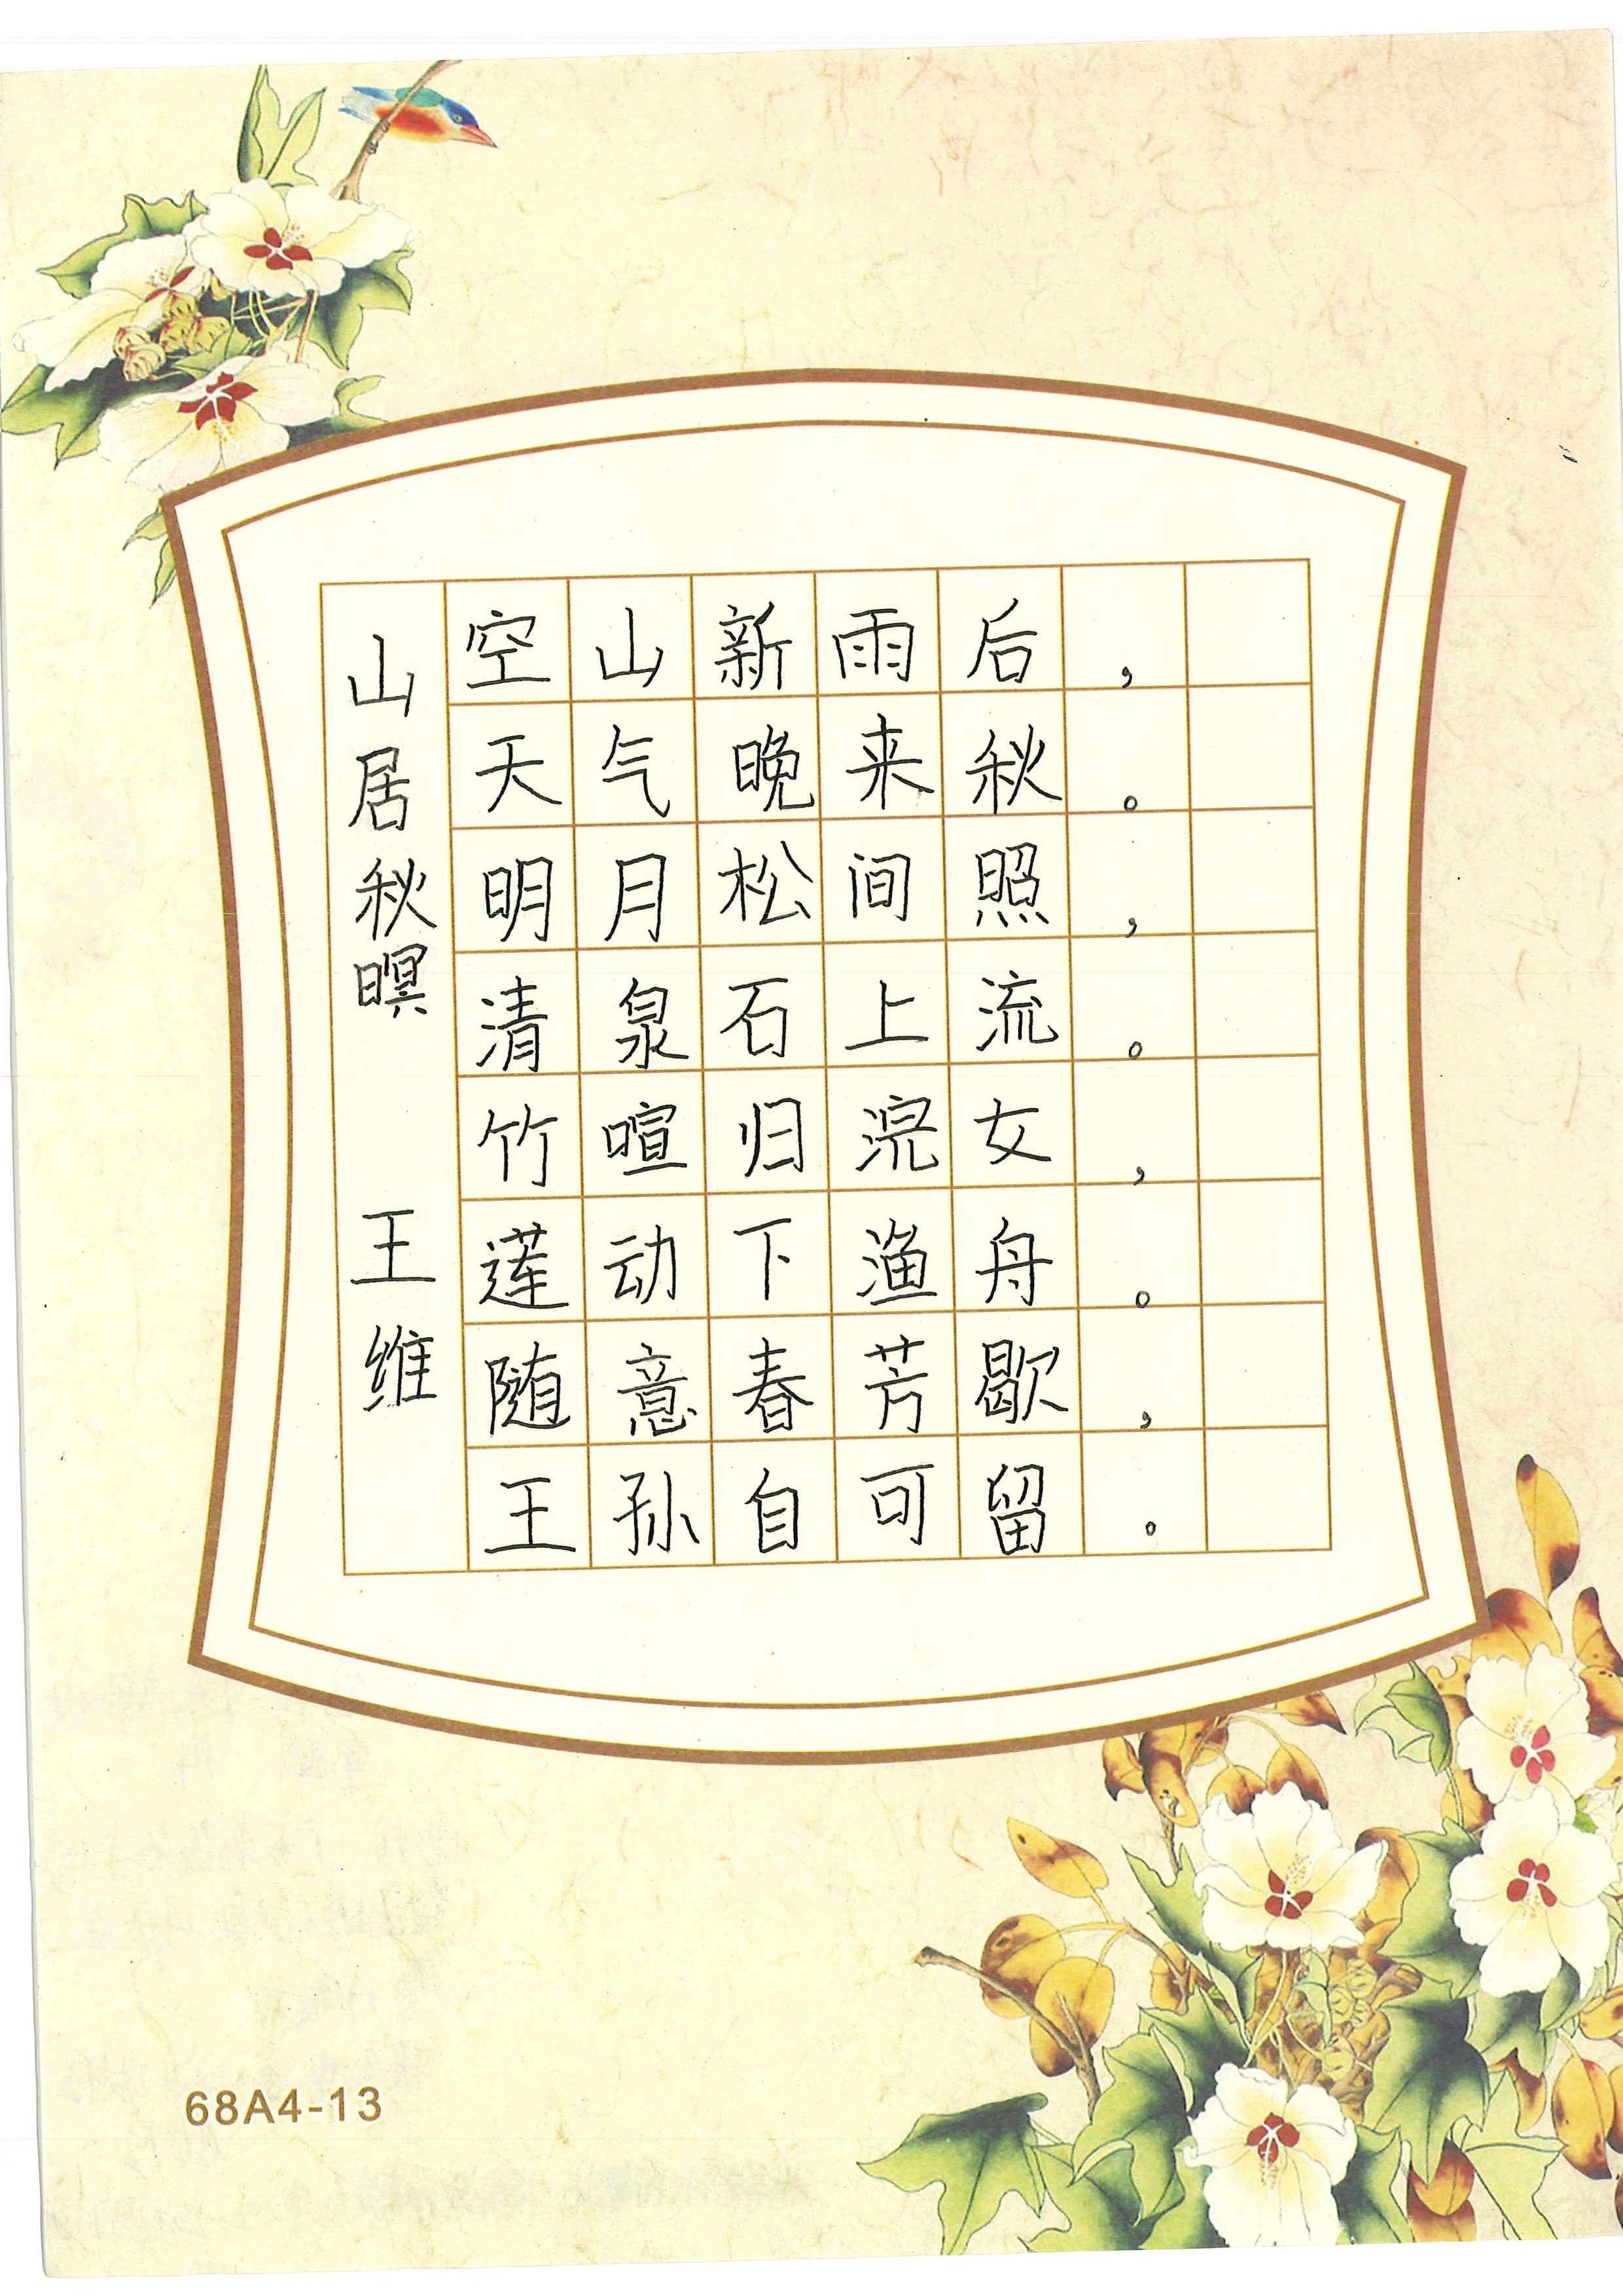 山居秋暝 王维
空山新雨后，
天气晚来秋。
明月松间照，
清泉石上流。
竹喧归浣女，
莲动下渔舟。
随意春芳歇，
王孙自可留。
68A4-13